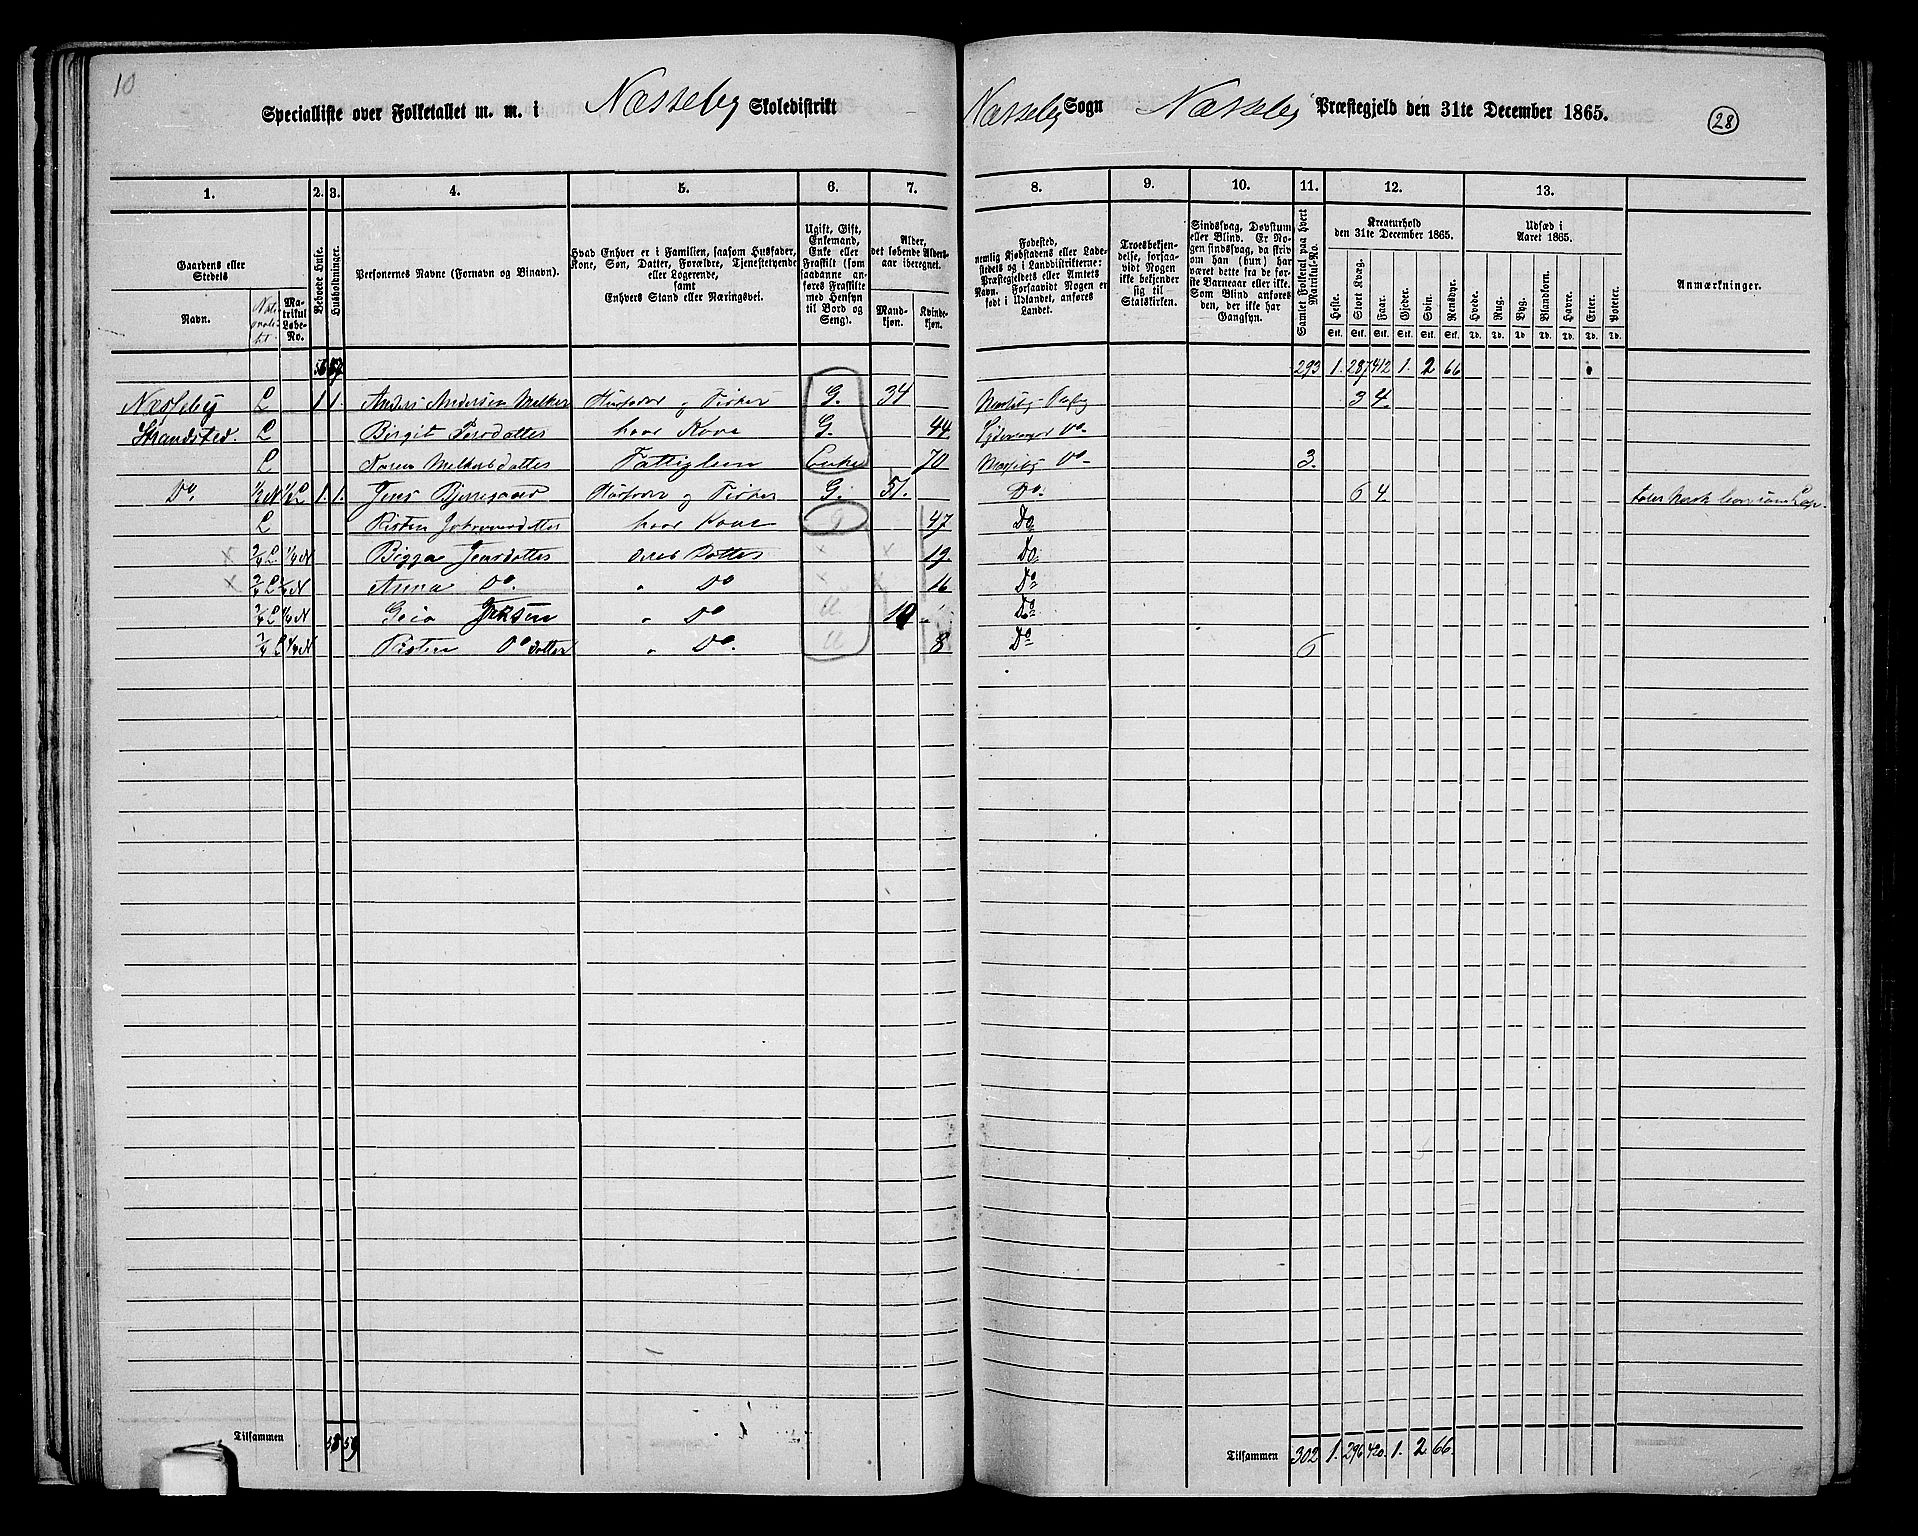 10
Specialliste over Folketallet m. m. i Næsseby Skoledistrikt Næsseby Sogn Næsseby Præstegjeld den 31te December 1865. 28
1. 2. 3. 4. 5. 6. 7. 8. 9. 10. 11. 12. 13.
Gaardens eller Stedets
Navn.
Matrikul Løbe-No.
Beboede Huse.
Husholdninger.
Personernes Navne (Fornavn og Binavn).
Hvad Enhver er i Familien, saasom Husfader, Kone, Søn, Datter, Forældre, Tjenestetyende eller Logerende, samt Enhvers Stand eller Næringsvei.
Ugift, Gift, Enkemand, Enke eller Fraskilt (som saadanne anføres Fraskilte med Hensyn til Bord og Seng).
Alder, det løbende Aldersaar iberegnet.
Mandkjøn. Kvindekjøn.
Fødested, nemlig Kjøbstadens eller Ladestedets og i Landdistrikterne: Præstegjeldets eller Amtets Navn. Forsaavidt Nogen er født i Udlandet, anføres Landet.
Troesbekjendelse, forsaavidt Nogen ikke bekjender sig til Statskirken.
Sindssvag, Døvstum eller Blind. Er Nogen sindssvag, da skriv om han (hun) har været dette fra de første Barneaar eller ikke. Som Blind anføres den, der ikke har Gangsyn.
Samlet Folketal paa hvert Matrikul-No.
Kreaturhold den 31te December 1865.
Heste. Stort Kvæg. Faar. Gjeder. Svin. Rensdyr.
Stk. Stk. Stk. Stk. Stk. Stk.
Udsæd i Aaret 1865.
Hvede. Rug. Byg. Blandkorn. Havre. Erter. Poteter.
Td. Td. Td. Td. Td. Td. Td.
Anmærkninger.
293 1. 287 412 1. 2 66
Næsseby L 1 1. Anders Andersen Melker Husfader og Fisker G. 34 Næsseby 3 4.
Strandsted. L Birgit Persdatter hans Kone G. 44 Sydvaranger Do.
L Karen Melkersdatter Fattiglem Enke 70 Næsseby Do 3.
Do. ½N ½L 1. 1. Jens Bjerregaard Husfader og Fisker G. 51. Do. 6 4
L Kirsten hans Kone G 47 Do
L N Bigga Jensdatter deres Datter 19 Do
L N Anna Do. " Do 16 Do
L N Jensen " Do 10 Do
L N Kirsten Do datter " Do. U 8 Do 6
Tilsammen 58 59
Tilsammen 302 1. 296 420. 1. 2 66.